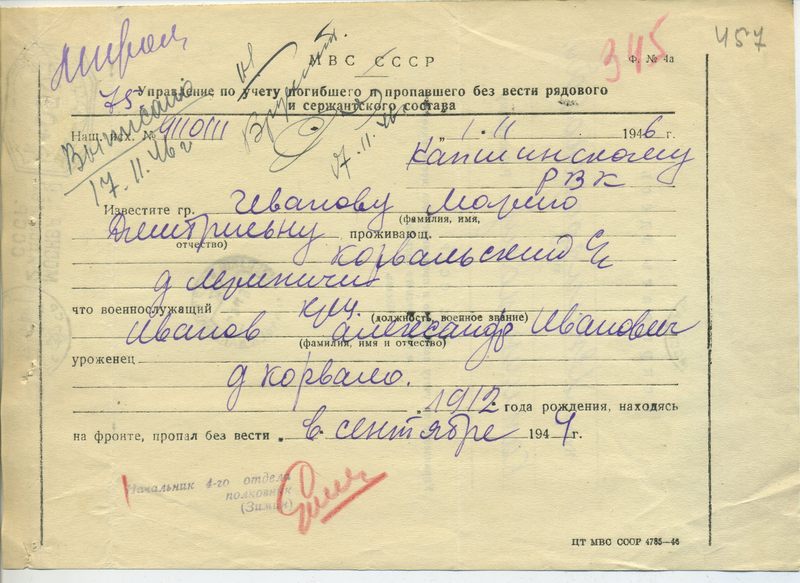 345
457
МВС СССР
Ф. № 4а
75
Управление по учету погибшего и пропавшего без вести рядового
и сержантского состава
Выписано
17.11.46г
Вручил
17.11.46г
Наш. исх. № 9110111
„1“ II 1946 г.
Капшинскому
РВК
Известите гр. Иванову Марию
(фамилия, имя,
Дмитриевну проживающ.
отчество)
Корвальский с/с
д
что военнослужащий кр-ц
(должность, военное звание)
Иванов Александр Иванович
(фамилия, имя и отчество)
уроженец
д Корвало.
1912 года рождения, находясь
на фронте, пропал без вести в сентябре 1944 г.
Начальник 4-го отдела
полковник
(Зимин)
ЦТ МВС СССР 4785—46